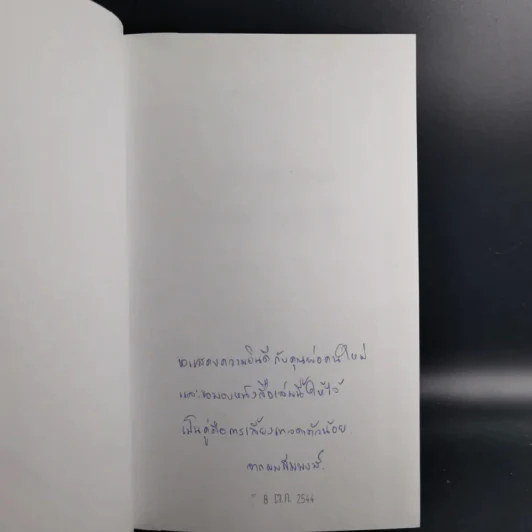 ขอแสดงความยินดี กับคุณพ่อคนใหม่
และขอมอบหนังสือเล่มนี้ให้ไว้
เป็นคู่มือการเลี้ยงเทวดาตัวน้อย
จาก
8 2544